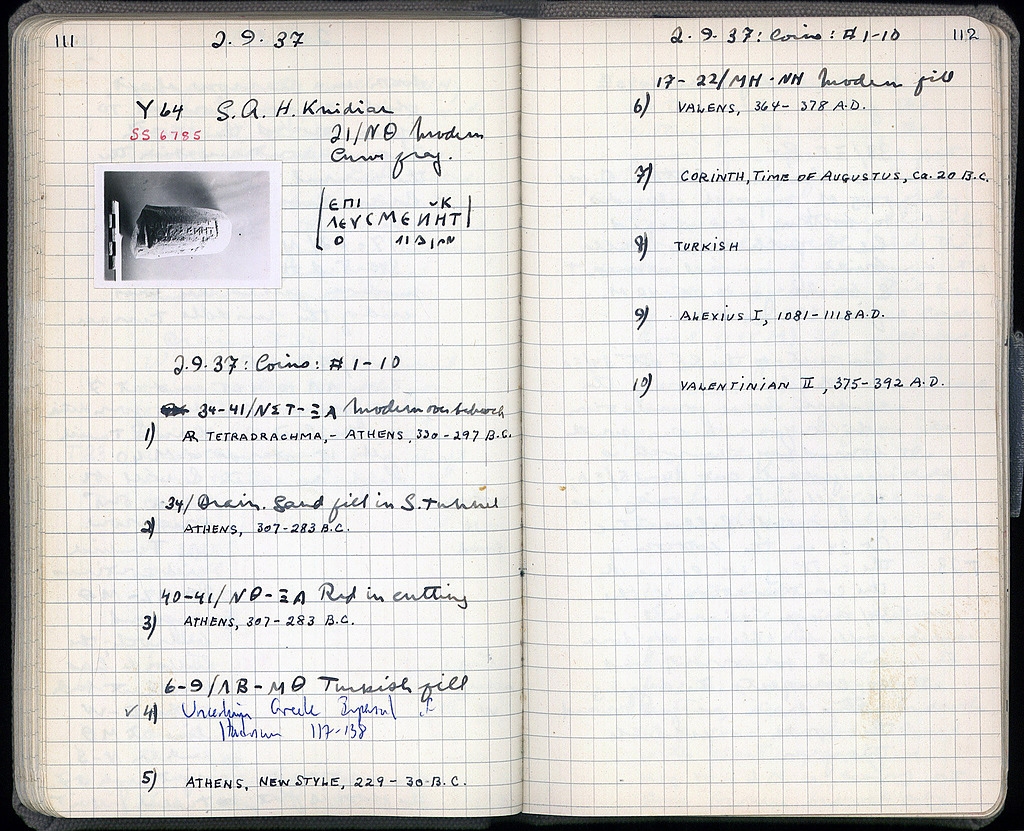 111
2.9.37
Y 64 S.A.H. Knidian
SS 6785
21/ΝΘ Modern
Curve frag.
ΕΠΙ ΚΚ
ΛΕΥΣΜΕΝΗΤ
Ο
2.9.37: Coins: # 1-10
34-41/ΝΣΤ-ΞΑ Modern over bedrock
1) AR TETRADRACHMA,- ATHENS, 330-297 B.C.
34/Drain. Sand fill in S. Tunnel
2) ATHENS, 307-283 B.C.
40-41/ΝΘ-ΞΑ Red in cutting
3) ATHENS, 307-283 B.C.
6-9/ΛΒ-ΜΘ Turkish fill
✓ 4) Uncertain Greek Imperial of
Hadrian 117-138
5) ATHENS, NEW STYLE, 229-30 B.C.
2.9.37: Coins: # 1-10
112
17-22/ΜΗ-ΝΗ Modern fill
6) VALENS, 364-378 A.D.
7) CORINTH, TIME OF AUGUSTUS, Ca. 20 B.C.
8) TURKISH
9) ALEXIUS I, 1081-1118 A.D.
10) VALENTINIAN II, 375-392 A.D.